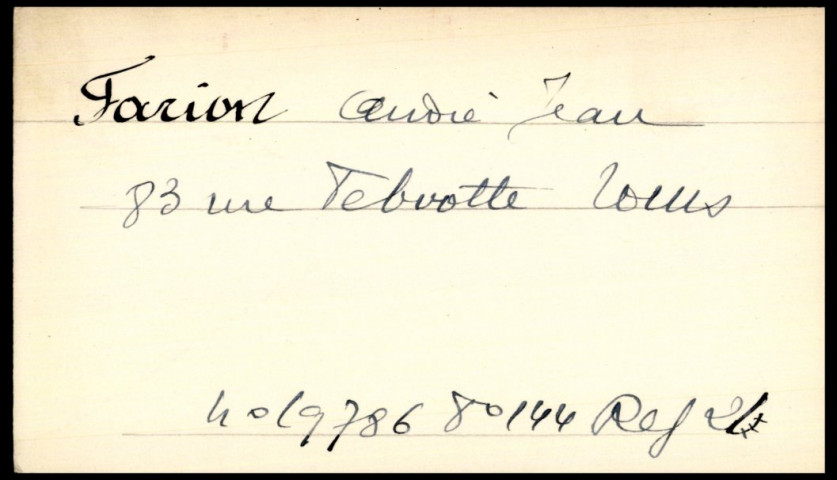 Farion André Jean
83 rue Tebvotte Tours
no 19786 80144 Ref 2